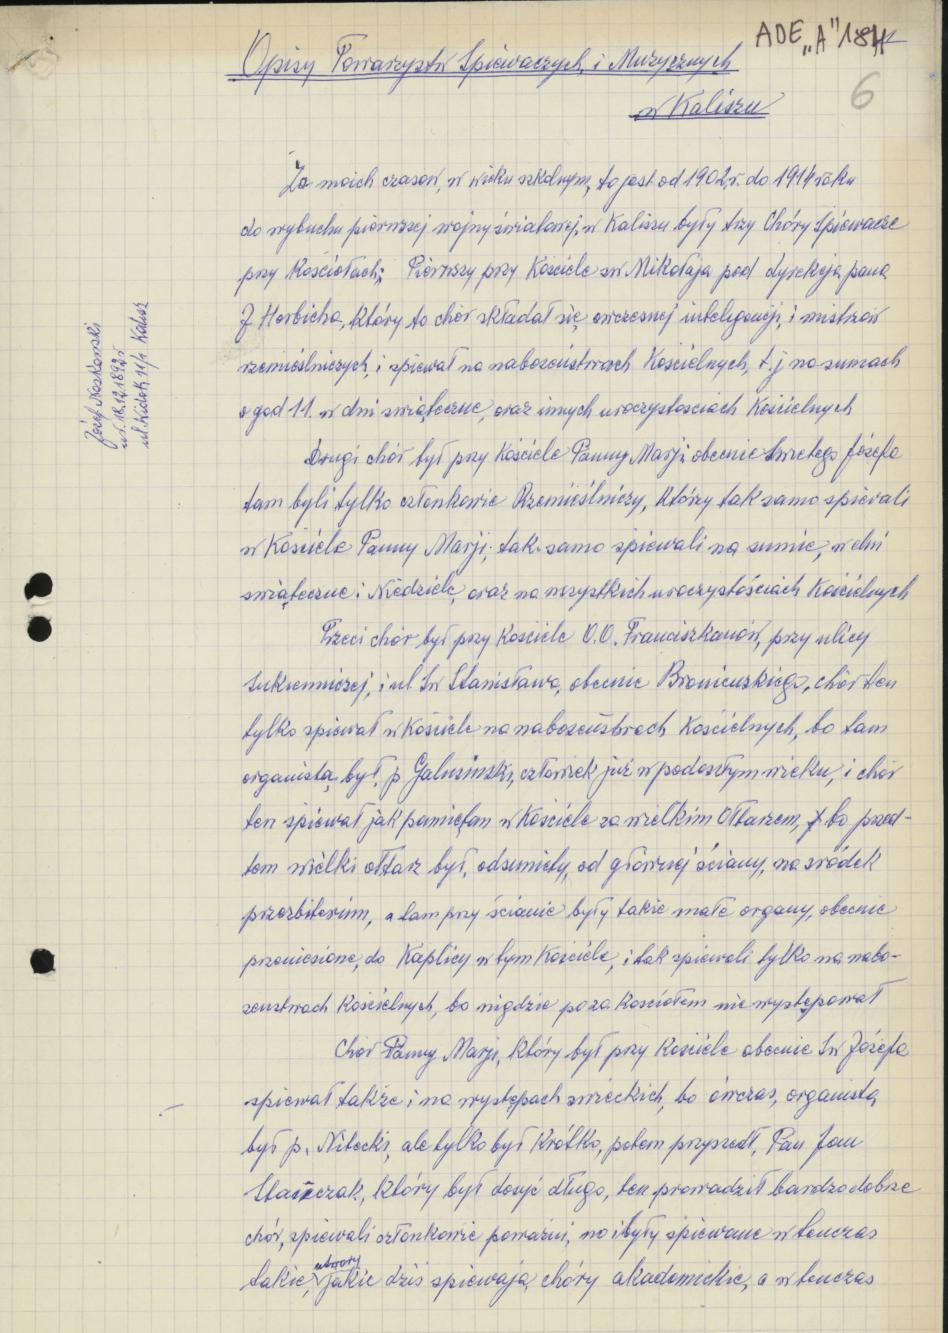 ADE „A” 184
6
Opisy Towarzystw Śpiewaczych i Muzycznych
w Kaliszu
Za moich czasów, w wieku szkolnym, to jest od 1902 r. do 1914 roku
do wybuchu pierwszej wojny światowej, w Kaliszu były trzy Chóry Śpiewacze
przy Kościołach; Pierwszy przy Kościele św Mikołaja pod dyrekcją pana
J Herbicha, który to chór składał się, owczesnej inteligencji, i mistrzów
rzemieślniczych, i spiewał na nabożeństwach Kościelnych, t. j na sumach
o god 11. w dni swiąteczne, oraz innych uroczystosciach Kościelnych
Drugi chór był przy Kościele Panny Marji obecnie Swietego Józefa
tam byli tylko członkowie Rzemieślniczy, którzy tak samo spiewali
w Kościele Panny Marji, tak samo spiewali na sumie, w dni
swiąteczne i Niedziele, oraz na wszystkich uroczystościach Kościelnych
Trzeci chór był przy Kościele O.O. Franciszkanów, przy ulicy
Sukienniczej, i ul. Św Stanisława, obecnie Broniewskiego, chór ten
tylko spiewał w Kościele na nabożeństwach Kościelnych, bo tam
organistą, był, p. Galusinski, człowiek już w podeszłym wieku, i chór
ten spiewał jak pamiętam w Kościele za wielkim Ołtarzem, bo przed-
tem wielki ołtarz był, odsuniety, od głównej ściany, na sródek
prezbiterium, a tam przy ścianie były takie małe organy, obecnie
przeniesione, do Kaplicy w tym Kościele, i tak spiewali tylko na nabo-
zenstwach Kościelnych, bo nigdzie poza Kosciołem nie występował
Chór Panny Marji, który był przy Kościele obecnie Św Józefa
spiewał także i na występach swieckich, bo ówczas, organistą
był p. Nitecki, ale tylko był Krótko, potem przyszedł, Pan Jan
Stasiczak, który był dosyć długo, ten prowadził bardzo dobrze
chór, spiewali członkowie poważni, no i były spiewane w tenczas
takie, utwory jakie dziś spiewają, chóry akademickie, a w tenczas
Józef Noskowski
ur. 18.12.1892 r
Kalisz